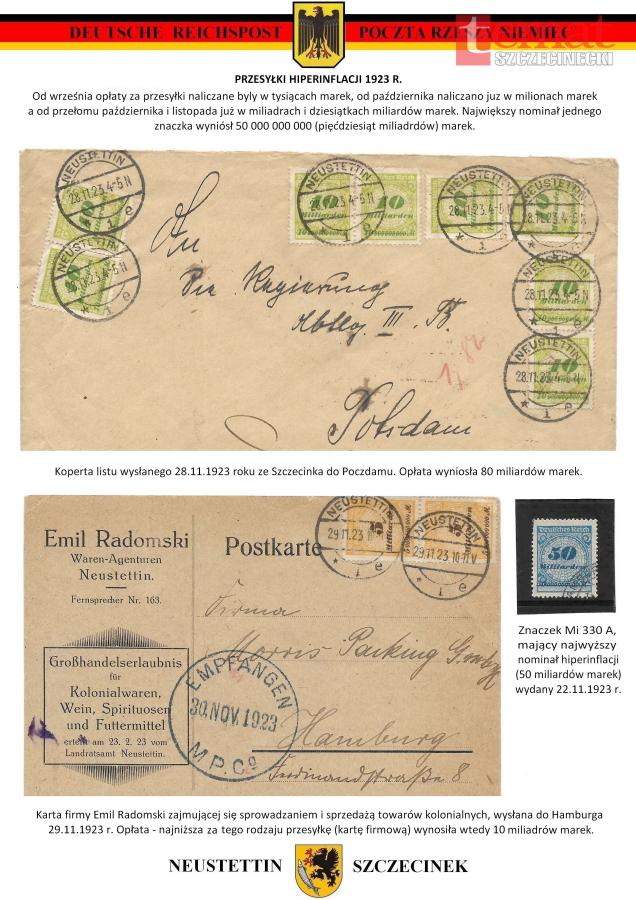 DEUTSCHE REICHSPOST POCZTA RZESZY NIEMIEC
temat
SZCZECINECKI
PRZESYŁKI HIPERINFLACJI 1923 R.
Od września opłaty za przesyłki naliczane byly w tysiącach marek, od października naliczano juz w milionach marek
a od przełomu października i listopada już w miliadrach i dziesiątkach miliardów marek. Największy nominał jednego
znaczka wyniósł 50 000 000 000 (pięćdziesiąt miliadrdów) marek.
NEUSTETTIN
28.11.23.4-5N
* 1 e
NEUSTETTIN
28.11.23.4-5N
* 1 e
NEUSTETTIN
28.11.23.4-5N
* 1 e
NEUSTETTIN
28.11.23.4-5N
* 1 e
NEUSTETTIN
28.11.23.4-5N
* 1 e
NEUSTETTIN
28.11.23.4-5N
* 1 e
NEUSTETTIN
28.11.23.4-5N
* 1 e
10 10
Milliarden Milliarden
An
Die Regierung
Abtlg III. B.
Potsdam
Koperta listu wysłanego 28.11.1923 roku ze Szczecinka do Poczdamu. Opłata wyniosła 80 miliardów marek.
Emil Radomski
Waren-Agenturen
Neustettin.
Fernsprecher Nr. 163.
Großhandelserlaubnis
für
Kolonialwaren,
Wein, Spirituosen
und Futtermittel
erteilt am 23. 2. 23 vom
Landratsamt Neustettin.
Postkarte
NEUSTETTIN
29.11.23
* 1 e
NEUSTETTIN
29.11.23.10-11V
* 1 e
5 5
Milliarden Milliarden
Firma
Morris Parking
Hamburg
Ferdinandstraße 8
EMPFANGEN
30.NOV.1923
M.P.Co
Deutsches Reich
50
Milliarden
Znaczek Mi 330 A,
mający najwyższy
nominał hiperinflacji
(50 miliardów marek)
wydany 22.11.1923 r.
Karta firmy Emil Radomski zajmującej się sprowadzaniem i sprzedażą towarów kolonialnych, wysłana do Hamburga
29.11.1923 r. Opłata - najniższa za tego rodzaju przesyłkę (kartę firmową) wynosiła wtedy 10 miliadrów marek.
NEUSTETTIN SZCZECINEK